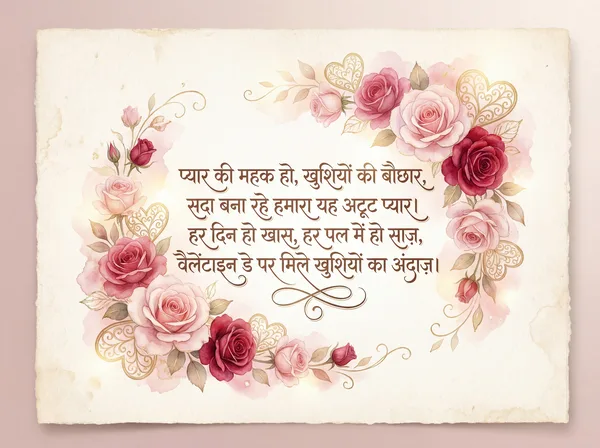 प्यार की महक हो, खुशियों की बौछार,
सदा बना रहे हमारा यह अटूट प्यार।
हर दिन हो खास, हर पल में हो साज़,
वैलेंटाइन डे पर मिले खुशियों का अंदाज़।